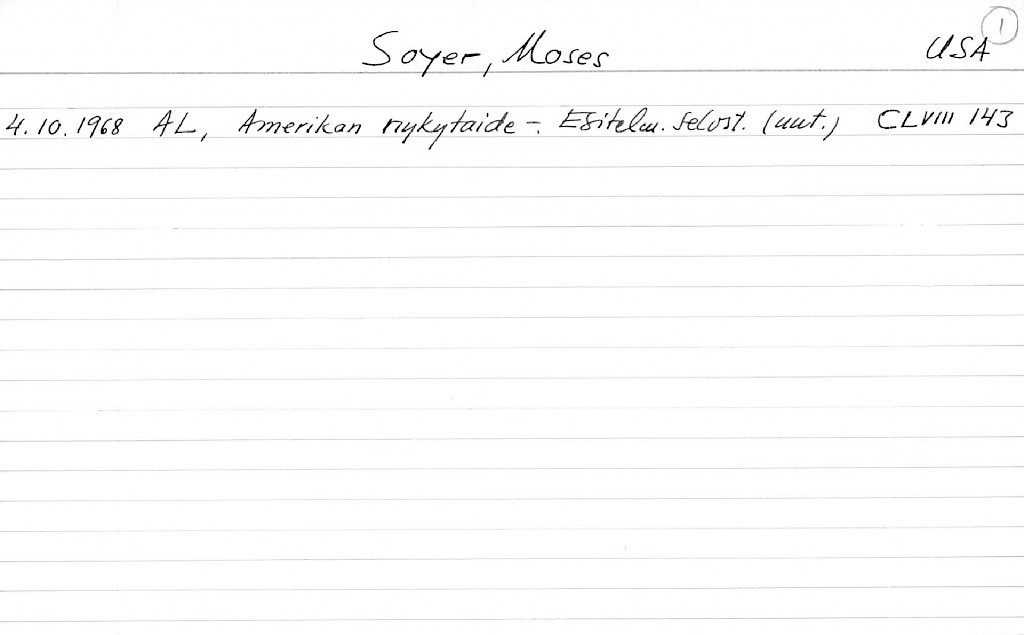 Soyer, Moses USA 1
4.10.1968 AL, Amerikan nykytaide -. Esitelm. selost. (uut.) CLVIII 143